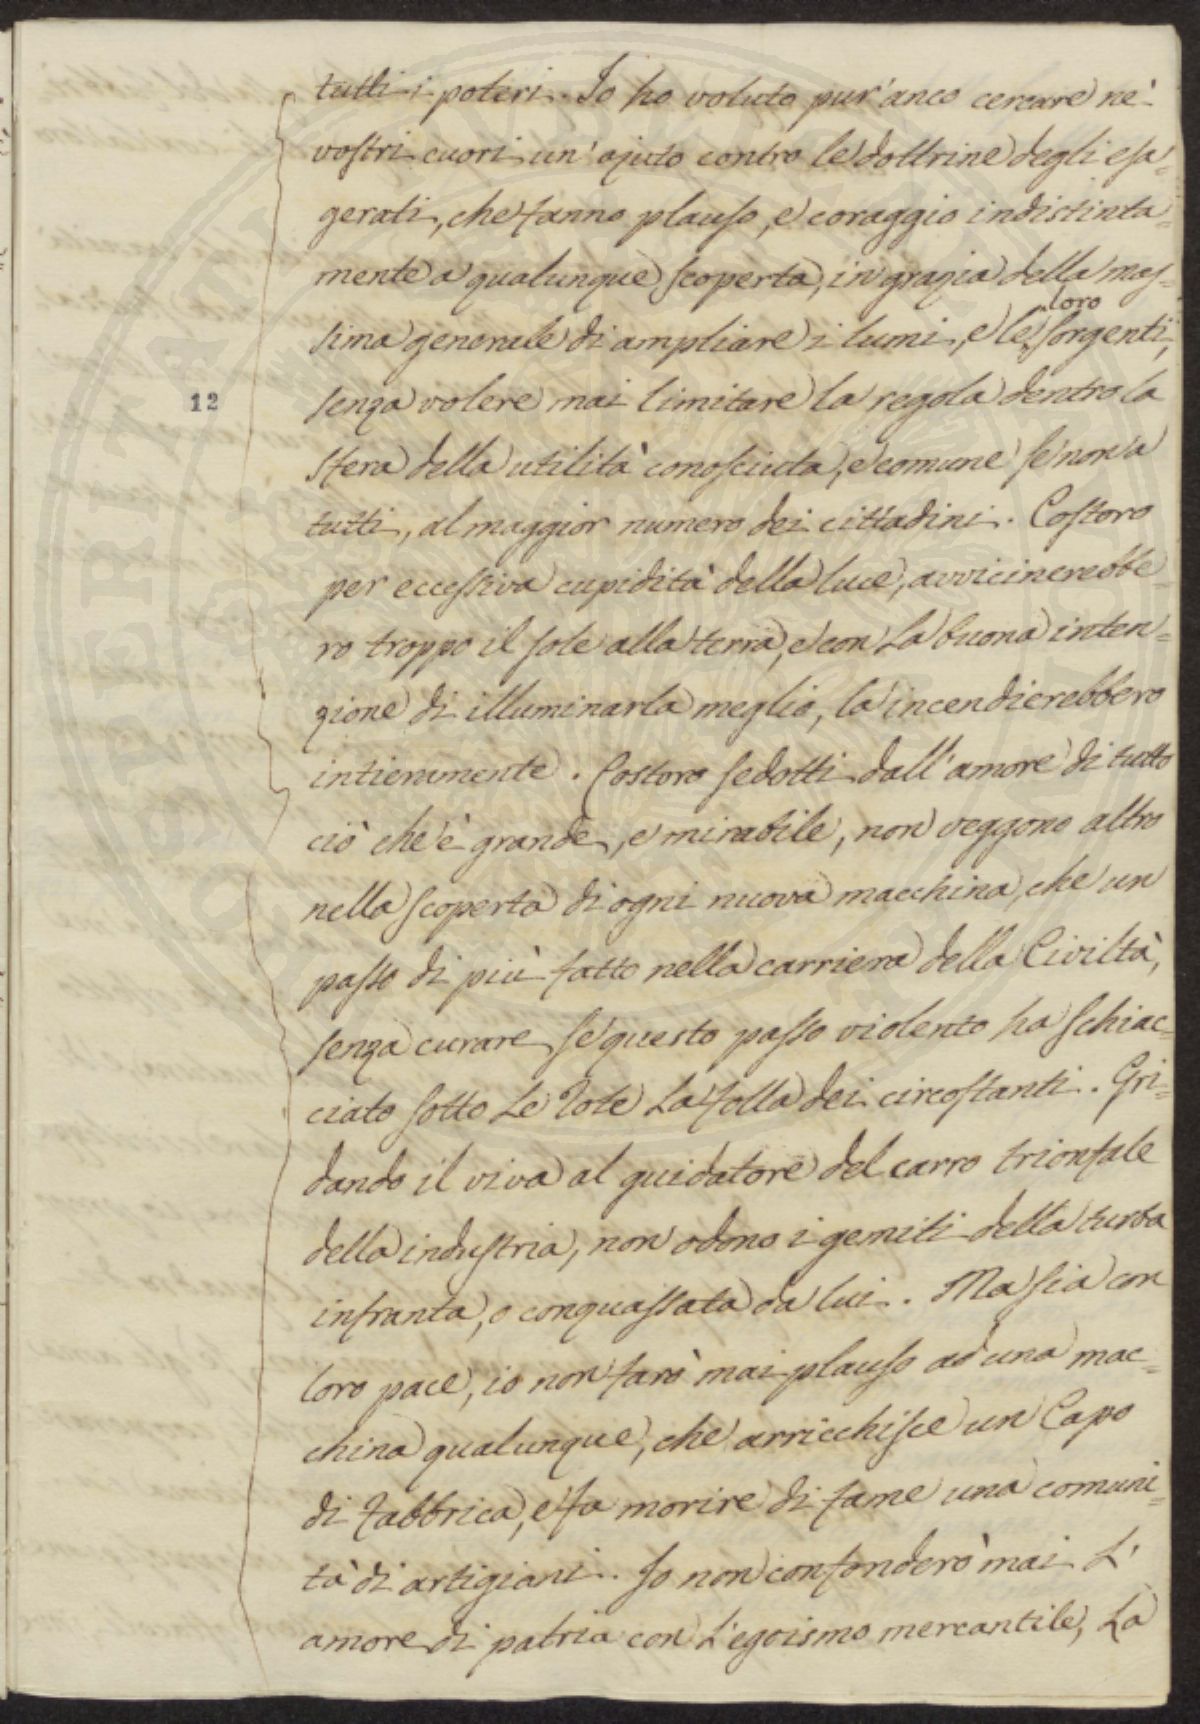 tutti i poteri. Io ho voluto pur'anco cercare ne'
vostri cuori un'ajuto contro le dottrine degli esa-
gerati, che fanno plauso, e coraggio indistinta=
mente a qualunque scoperta, in grazia della mas=
loro
sima generale di ampliare i lumi, e le sorgenti,
12
senza volere mai limitare la regola dentro la
sfera della utilità conosciuta, e comune se non a
tutti, al maggior numero dei cittadini. Costoro
per eccessiva cupidità della luce, avvicinerebbe-
ro troppo il sole alla terra, e con la buona inten=
zione di illuminarla meglio, la incendierebbero
intieramente. Costoro sedotti dall'amore di tutto
ciò che è grande, e mirabile, non veggono altro
nella scoperta di ogni nuova macchina, che un
passo di più fatto nella carriera della Civiltà,
senza curare se questo passo violento ha schiac=
ciato sotto le rote la folla dei circostanti. Gri=
dando il viva al guidatore del carro trionfale
della industria, non odono i gemiti della turba
infranta, o conquassata da lui. Ma sia con
loro pace, io non farò mai plauso ad una mac=
china qualunque, che arricchisce un Capo
di Fabbrica, e fa morire di fame una comuni=
tà di artigiani. Io non confonderò mai l'
amore di patria con l'egoismo mercantile, la